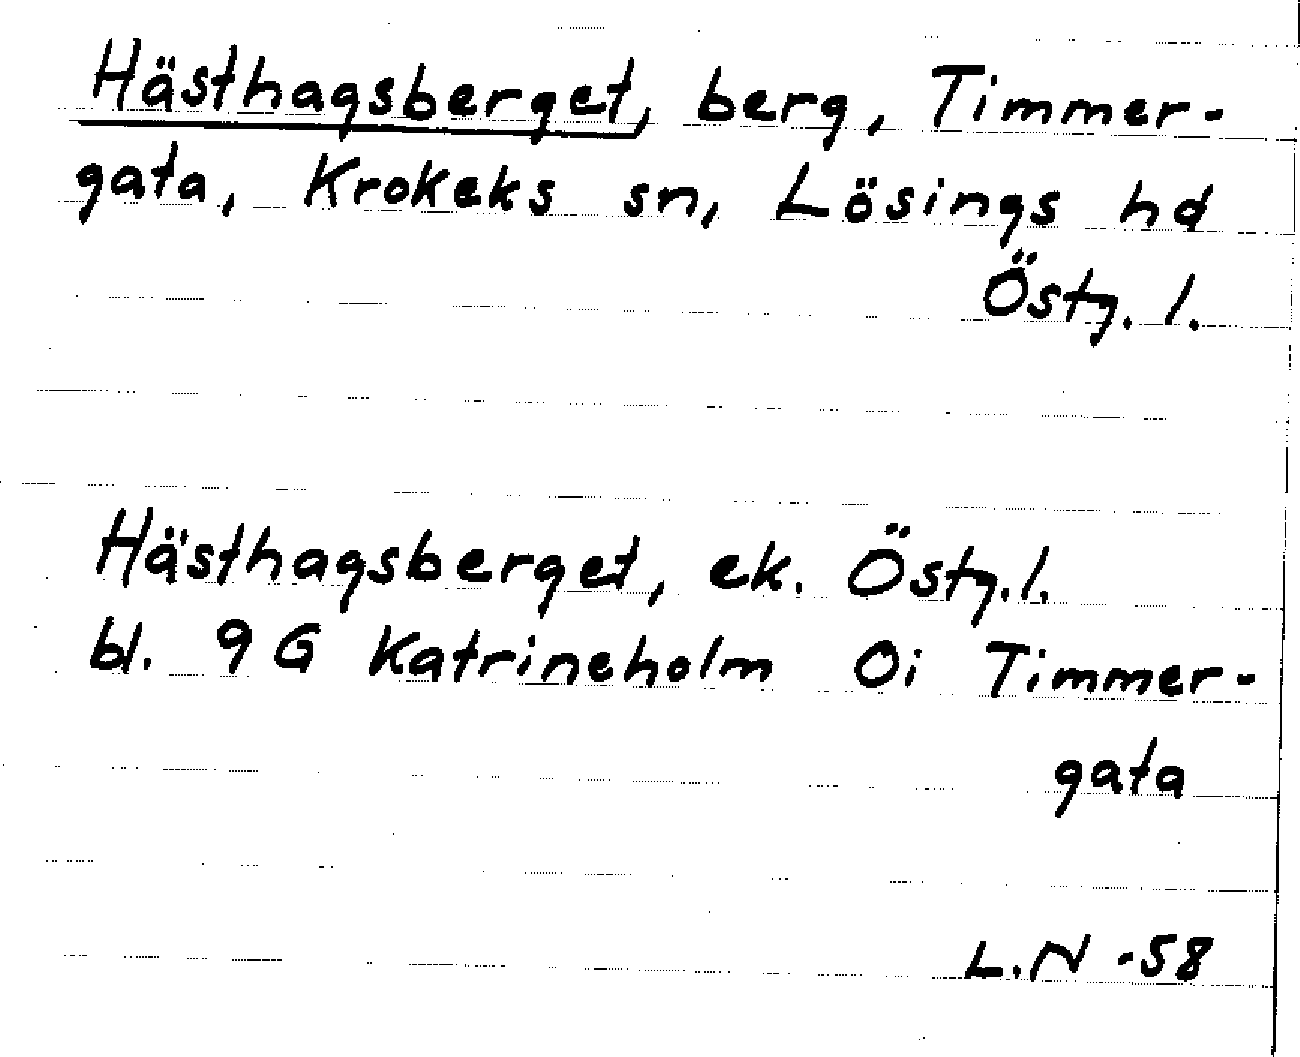 Hästhagsberget, berg, Timmer-
gata, Krokeks sn, Lösings hd
Östg. l.
Hästhagsberget, ek. Östg. l.
bl. 9 G Katrineholm 0i Timmer-
gata
L.N -58